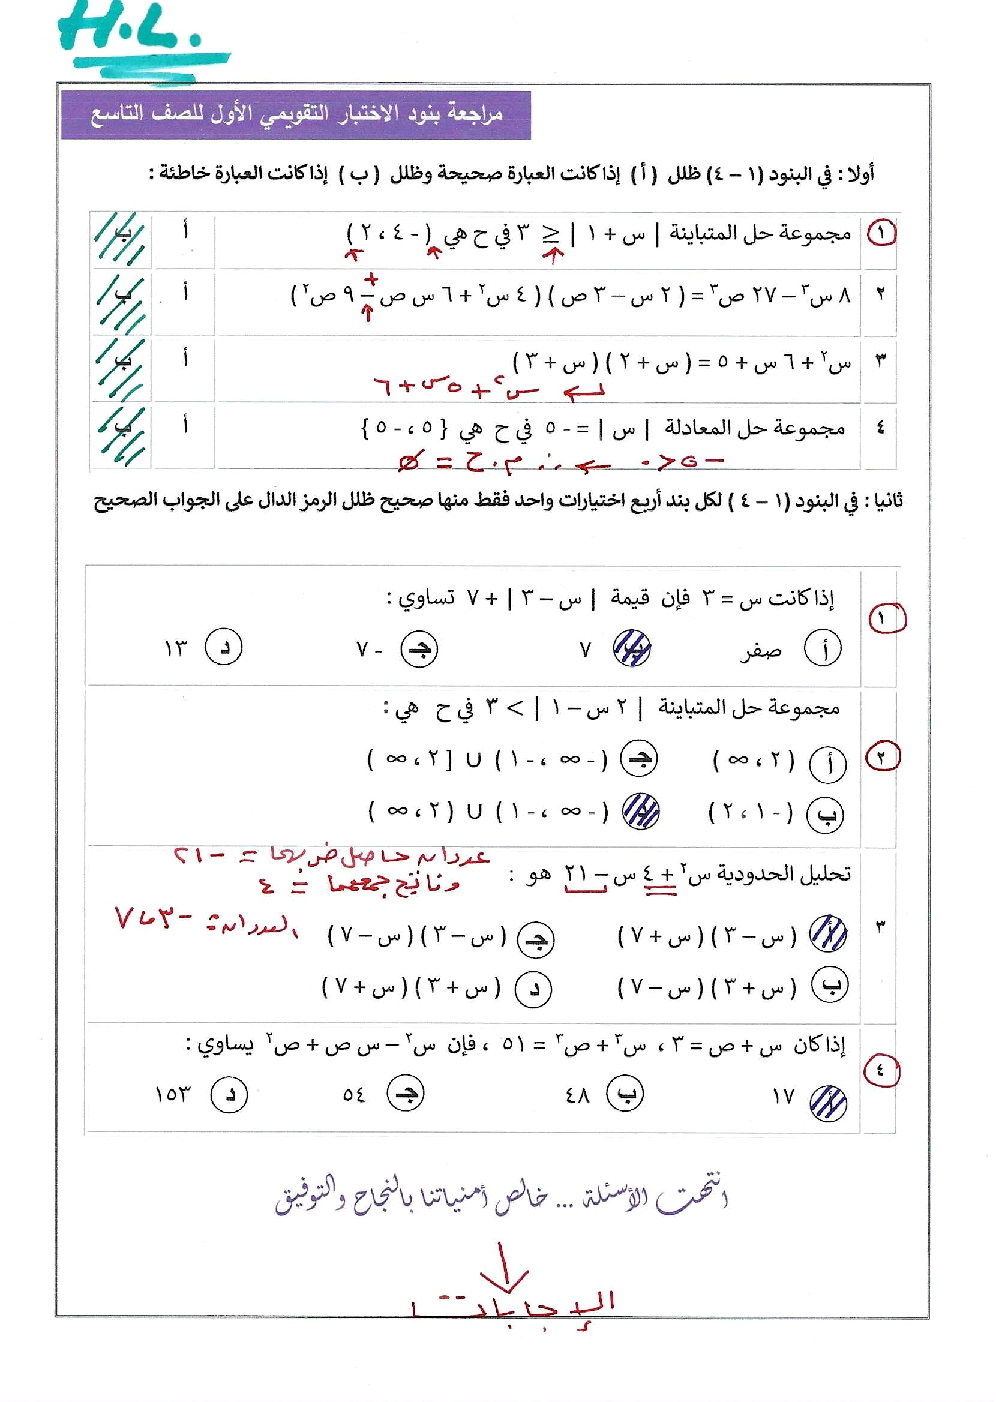 H.L.
مراجعة بنود الاختبار التقويمي الأول للصف التاسع
أولا : في البنود (١ – ٤) ظلل (أ) إذا كانت العبارة صحيحة وظلل (ب) إذا كانت العبارة خاطئة :
١ مجموعة حل المتباينة | س + ١ | ≥ ٣ في ح هي ( -٤ ، ٢ ) أ ب
٢ ٨ س٣ – ٢٧ ص٣ = ( ٢ س – ٣ ص ) ( ٤ س٢ + ٦ س ص – ٩ ص٢ ) أ ب
+
٣ س٢ + ٦ س + ٥ = ( س + ٢ ) ( س + ٣ ) أ ب
س٢ + ٥س + ٦
٤ مجموعة حل المعادلة | س | = -٥ في ح هي { ٥ ، -٥ } أ ب
-٥ < ٠ ← ∴ م.ح = ∅
ثانيا : في البنود (١ – ٤) لكل بند أربع اختيارات واحد فقط منها صحيح ظلل الرمز الدال على الجواب الصحيح
١ إذا كانت س = ٣ فإن قيمة | س – ٣ | + ٧ تساوي :
أ صفر ب ٧ جـ -٧ د ١٣
مجموعة حل المتباينة | ٢ س – ١ | > ٣ في ح هي :
٢ أ ( ٢ ، ∞ ) جـ ( -∞ ، -١ ) ∪ [ ٢ ، ∞ )
ب ( -١ ، ٢ ) ( -∞ ، -١ ) ∪ ( ٢ ، ∞ )
عددان حاصل ضربهما = -٢١
تحليل الحدودية س٢ + ٤ س – ٢١ هو :
وناتج جمعهما = ٤
العددان: -٣ ، ٧
٣ أ ( س – ٣ ) ( س + ٧ ) جـ ( س – ٣ ) ( س – ٧ )
ب ( س + ٣ ) ( س – ٧ ) د ( س + ٣ ) ( س + ٧ )
إذا كان س + ص = ٣ ، س٣ + ص٣ = ٥١ ، فإن س٢ – س ص + ص٢ يساوي :
٤ أ ١٧ ب ٤٨ جـ ٥٤ د ١٥٣
انتهت الأسئلة ... خالص أمنياتنا بالنجاح والتوفيق
الإجابات